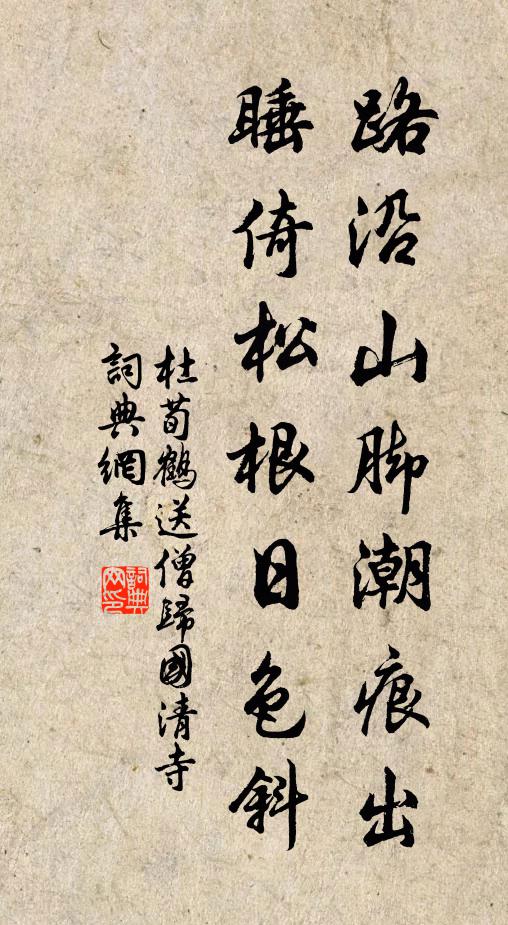 路沿山脚潮痕出
睡倚松根日色斜
杜荀鶴送僧歸國清寺
詞典網集
詞典
网印